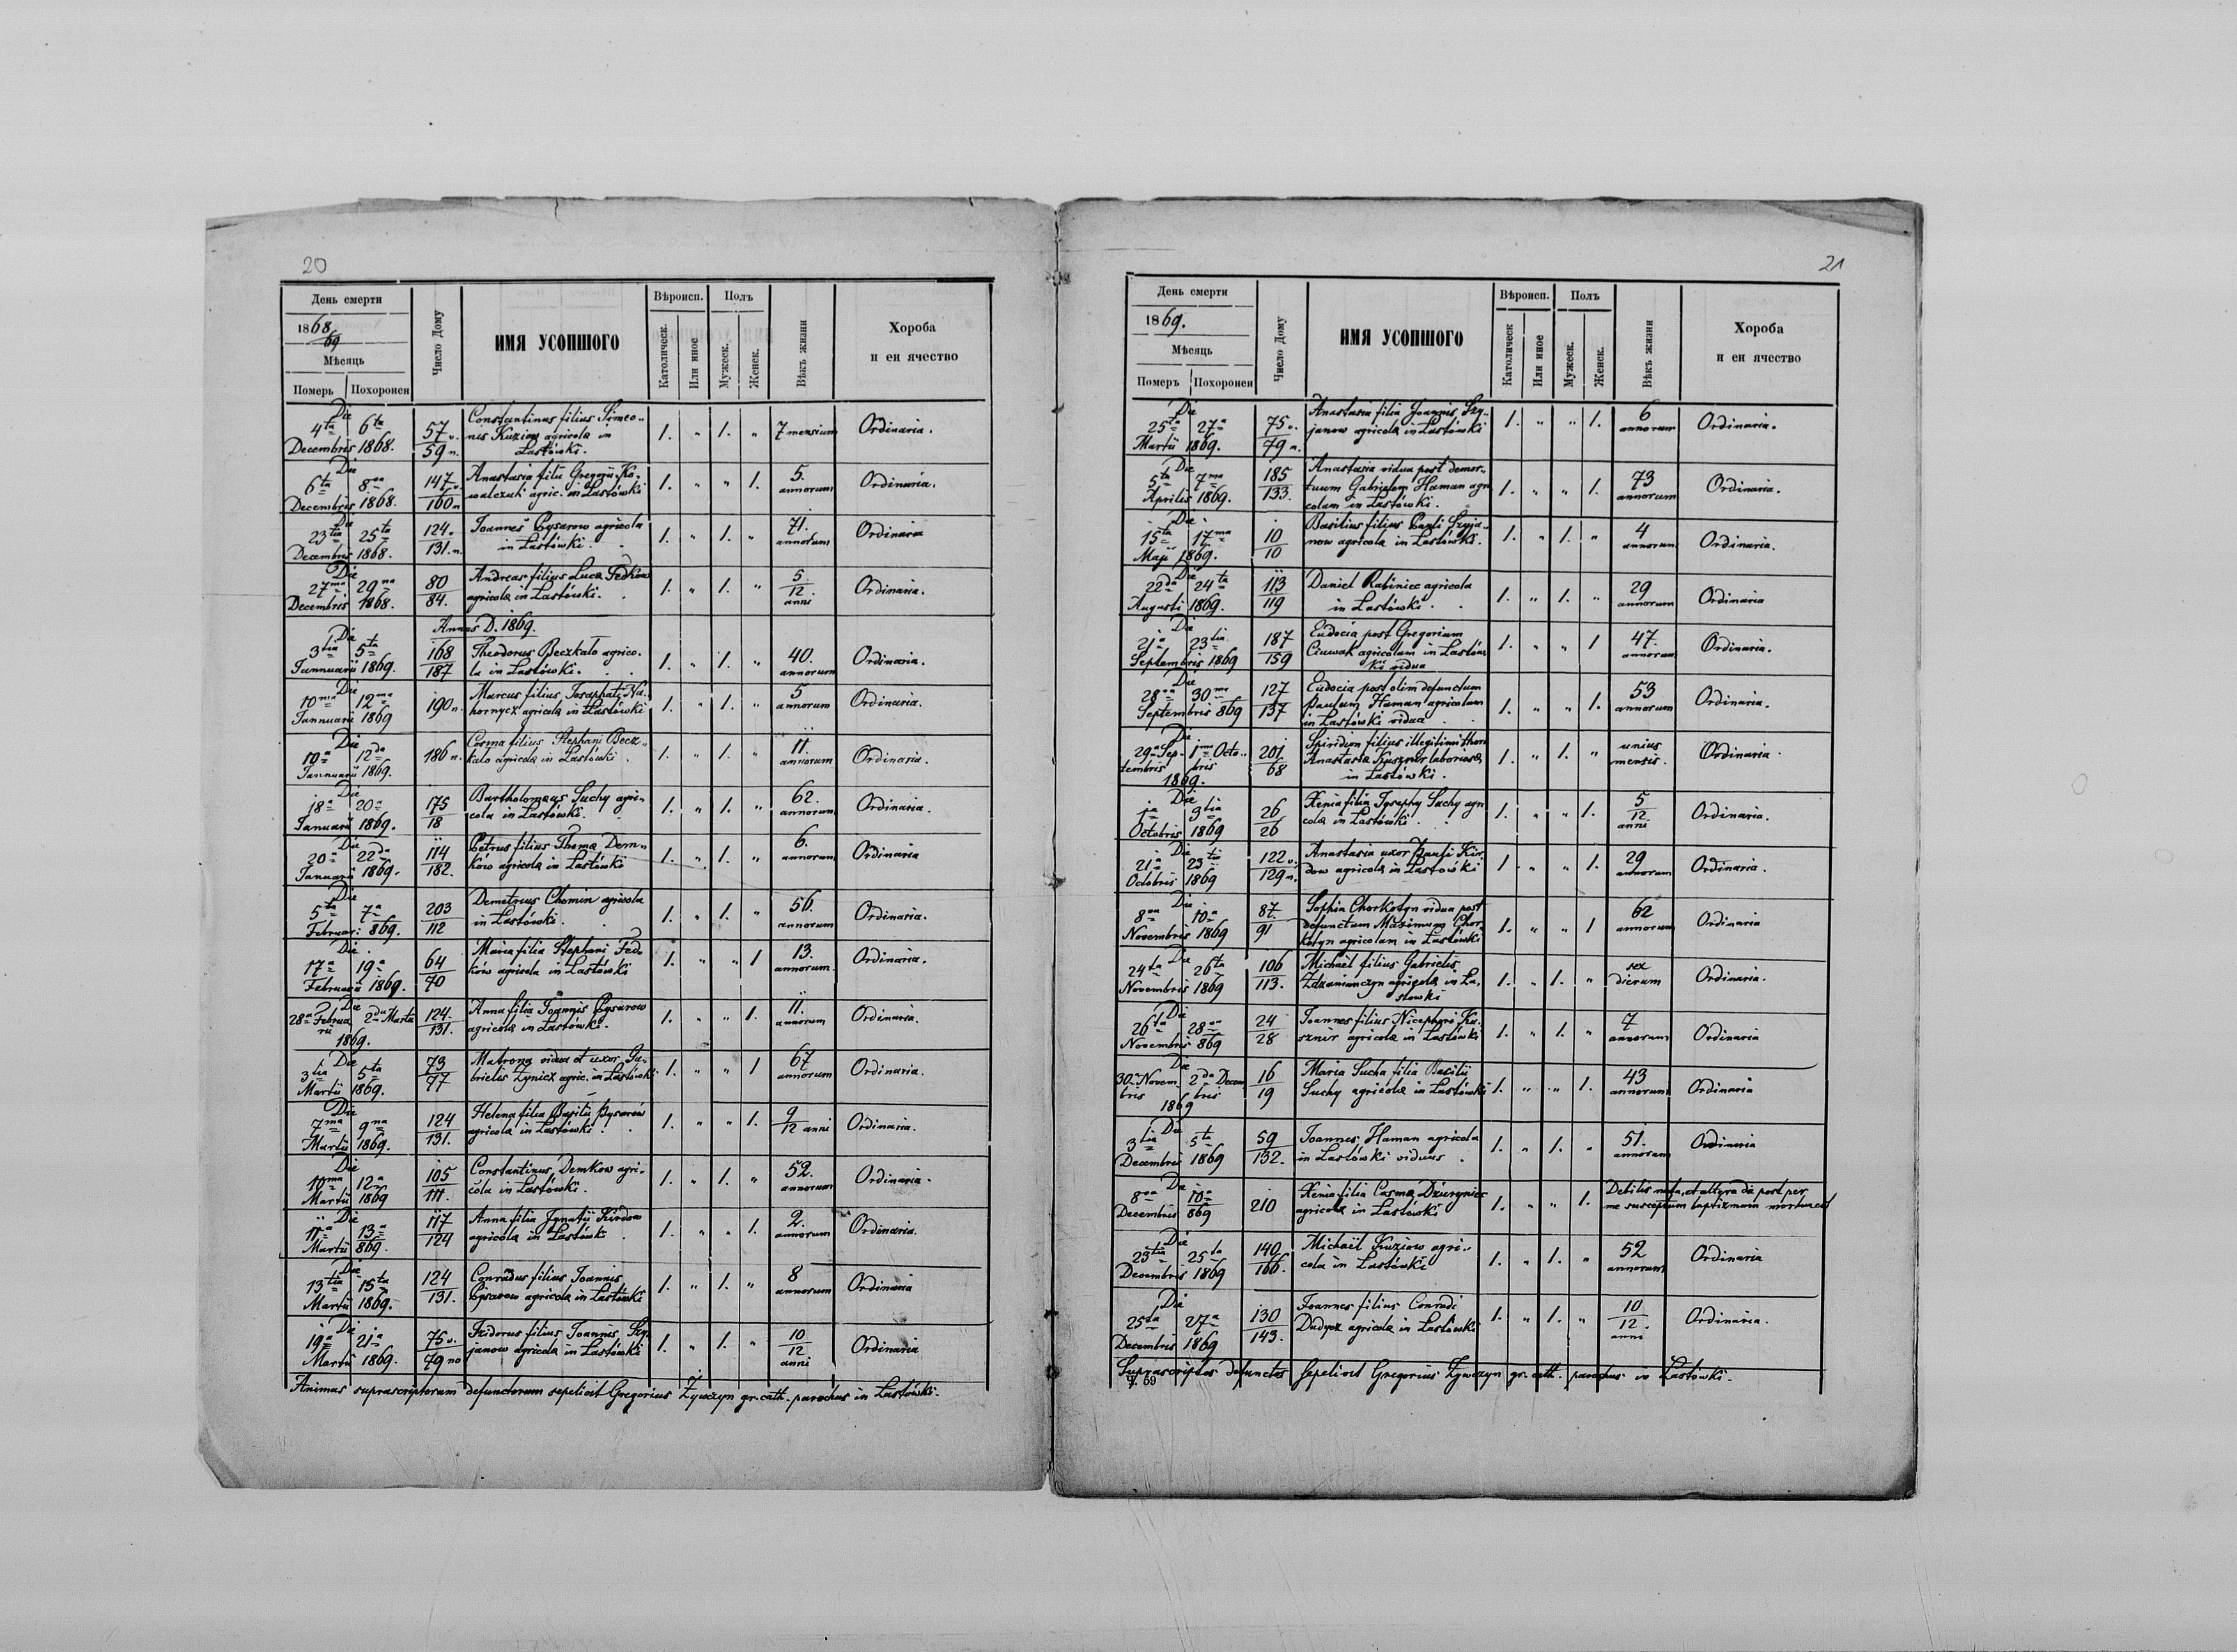 20
День смерти
1868/69
Мѣсяць
Померъ Похоронен
Число Дому
ИМЯ УСОПШОГО
Вѣроисп.
Католическ.
Или иное
Полъ
Мужеск.
Женск.
Вѣкъ жизни
Хороба
и еи ячество
Die
4ta 6ta 57 v. Constantinus filius Simeo- 1. " 1. " 7 mensium Ordinaria.
nis Kuziow agricola in
Decembris 1868. 59 n. Łastówki.
Die
6ta 8va 147 v. Anastasia filia Gregorii Ko- 1. " " 1. 5. annorum Ordinaria.
Decembris 1868. 160 n walczuk agric. in Łastówki
Die
23tia 25ta 124. Joannes Pysarow agricola 1. " 1. " 71. annorum Ordinaria
Decembris 1868. 131. n. in Łastówki.
Die
27ma 29na 80 Andreas filius Luca Fedkow 1. " 1. " 5/12. anni Ordinaria.
Decembris 1868. 84. agricola in Łastówki.
Annus D. 1869.
Die
3tia 5ta 168 Theodorus Beczkało agrico- 1. " 1. " 40. annorum Ordinaria.
Jannuarii 1869. 187 la in Łastówki.
Die
10ma 12ma 190 n. Marcus filius Josaphati Na- 1. " 1. " 5 annorum Ordinaria.
Jannuarii 1869 hornycz agricola in Łastówki
Die
10a 12da 186 n. Cosma filius Stephani Becz- 1. " 1. " 11. annorum Ordinaria.
Jannuarii 1869. kało agricola in Łastówki.
Die
18a 20a 175 Bartholomaus Suchy agri- 1. " 1. " 62. annorum Ordinaria.
Januarii 1869. 18 cola in Łastówki.
Die
20a 22da 114 Petrus filius Thoma Dem- 1. " 1. " 6. annorum Ordinaria
Januarii 1869. 182. ków agricola in Łastówki
Die
5ta 7a 203 Demetrius Chomin agricola 1. " 1. " 56. annorum Ordinaria.
Februari 869. 112 in Łastówki.
Die
17a 19a 64 Maria filia Stephani Fed- 1. " " 1 13. annorum Ordinaria.
Februarii 1869. 70 ków agricola in Łastówki
Die
28a Februa 2da Martii 124. Anna filia Joannis Pysarow 1. " " 1. 11. annorum Ordinaria.
rii 131. agricola in Łastówki.
1869.
Die
3tia 5ta 73 Matrona vidua et uxor Ga- 1. " " 1 67 annorum Ordinaria.
Martii 1869. 77 brielis Zynicz agric. in Łastówki
Die
7ma 9na 124 Helena filia Basilii Pysarów 1. " " 1. 9/12 anni Ordinaria.
Martii 1869. 131. agricola in Łastówki.
Die
10ma 12a 105 Constantinus Demkow agri- 1. " 1. " 52. annorum Ordinaria.
Martii 1869 111. cola in Łastówki.
Die
11a 13a 117 Anna filia Ignatii Kirdow 1. " " 1. 2. annorum Ordinaria.
Martii 869. 124 agricola in Łastówki
Die
13tia 15ta 124 Conradus filius Joannis 1. " 1. " 8 annorum Ordinaria
Martii 1869. 131. Pysarow agricola in Łastówki
Die
19a 21a 75 v. Isidorus filius Joannis Szy- 1. " 1. " 10/12 anni Ordinaria
Martii 1869. 79 no janow agricola in Łastówki
Animas suprascriptorum defunctorum sepelivit Gregorius Żywczyn gr. cath. parochus in Łastówki.
21
День смерти
1869.
Мѣсяць
Померъ Похоронен
Число Дому
ИМЯ УСОПШОГО
Вѣроисп.
Католическ
Или иное
Полъ
Мужеск.
Женск.
Вѣкъ жизни
Хороба
и еи ячество
Die
25ta 27a 75 v. Anastasia filia Joannis Szy- 1. " " 1. 6 annorum Ordinaria.
Martii 1869. 79 n. janow agricola in Łastówki
Die
5ta 7ma 185 Anastasia vidua post demor- 1. " " 1. 73 annorum Ordinaria.
Aprilis 1869. 133. tuum Gabrielem Haman agri
colam in Łastówki.
Die
15ta 17ma 10 Basilius filius Pauli Szyja- 1. " 1. " 4 annorum Ordinaria.
Maji 1869. 10 now agricola in Łastówki.
Die
22da 24ta 113 Daniel Rabiniec agricola 1. " 1. " 29 annorum Ordinaria
Augusti 1869. 119 in Łastówki.
Die
21a 23tia 187 Eudocia post Gregorium 1. " " 1 47. annorum Ordinaria.
Septembris 1869 159 Ciuwak agricolam in Łastów
ki vidua
Die
28va 30ma 127 Eudocia post olim defunctum 1. " " 1. 53 annorum Ordinaria.
Septembris 869 137 Paulum Haman agricolam
in Łastówki vidua
Die
29a Sep- 1ma Octo- 201 Spiridion filius illegitimi thori 1. " 1. " unius mensis. Ordinaria.
tembris bris 68 Anastasia Kusznir laboriosa
1869. in Łastówki.
Die
1a 3tia 26 Xenia filia Josephy Suchy agri 1. " " 1. 5/12 anni Ordinaria.
Octobris 1869 26 cola in Łastówki.
Die
21a 23tii 122 v. Anastasia uxor Pauli Kir- 1 " " 1. 29 annorum Ordinaria.
Octobris 1869 129 n. dow agricola in Łastówki
Die
8va 10a 87. Sophia Chorkotyn vidua post 1. " " 1 62 annorum Ordinaria
Novembris 1869 91 defunctum Maximum Chor-
kotyn agricolam in Łastówki
Die
24ta 26ta 106 Michaël filius Gabrielis 1. " 1. " sex dierum Ordinaria.
Novembris 1869 113. Zdzaniunczyn agricola in Ła-
stowki
Die
26ta 28va 24 Joannes filius Nicephori Ku- 1. " 1. " 7 annorum Ordinaria
Novembris 869 28 sznir agricola in Łastówki
Die
30a Novem 2da Decem 16 Maria Sucha filia Basilii 1. " " 1. 43 annorum Ordinaria
bris bris 19 Suchy agricola in Łastówki
1869
Die
3tia 5ta 59 Joannes Haman agricola 1. " 1. " 51. annorum Ordinaria
Decembris 1869 132. in Łastówki viduus.
Die
8va 10a 210 Xenia filia Cosma Dziuryniec 1. " " 1. Debilis nata, et altera die post per
Decembris 869 agricola in Łastówki me susceptum baptizmum mortua est
Die
23tia 25ta 140 Michaïl Kuziow agri- 1. " 1. " 52 annorum Ordinaria
Decembris 1869 166. cola in Łastówki
Die
25ta 27a 130 Joannes filius Conradi 1. " 1. " 10/12. anni Ordinaria.
Decembris 1869 143. Dudycz agricola in Łastówki
Suprascriptos defunctos sepelivit Gregorius Żywczyn gr. cath. parochus in Łastowki.
59